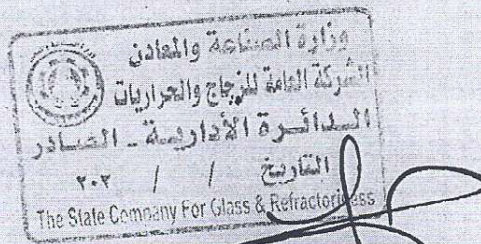 وزارة الصناعة والمعادن
الشركة العامة للزجاج والحراريات
الدائرة الأدارية - الصادر
التاريخ / / ٢٠٢
The State Company For Glass & Refractoriess